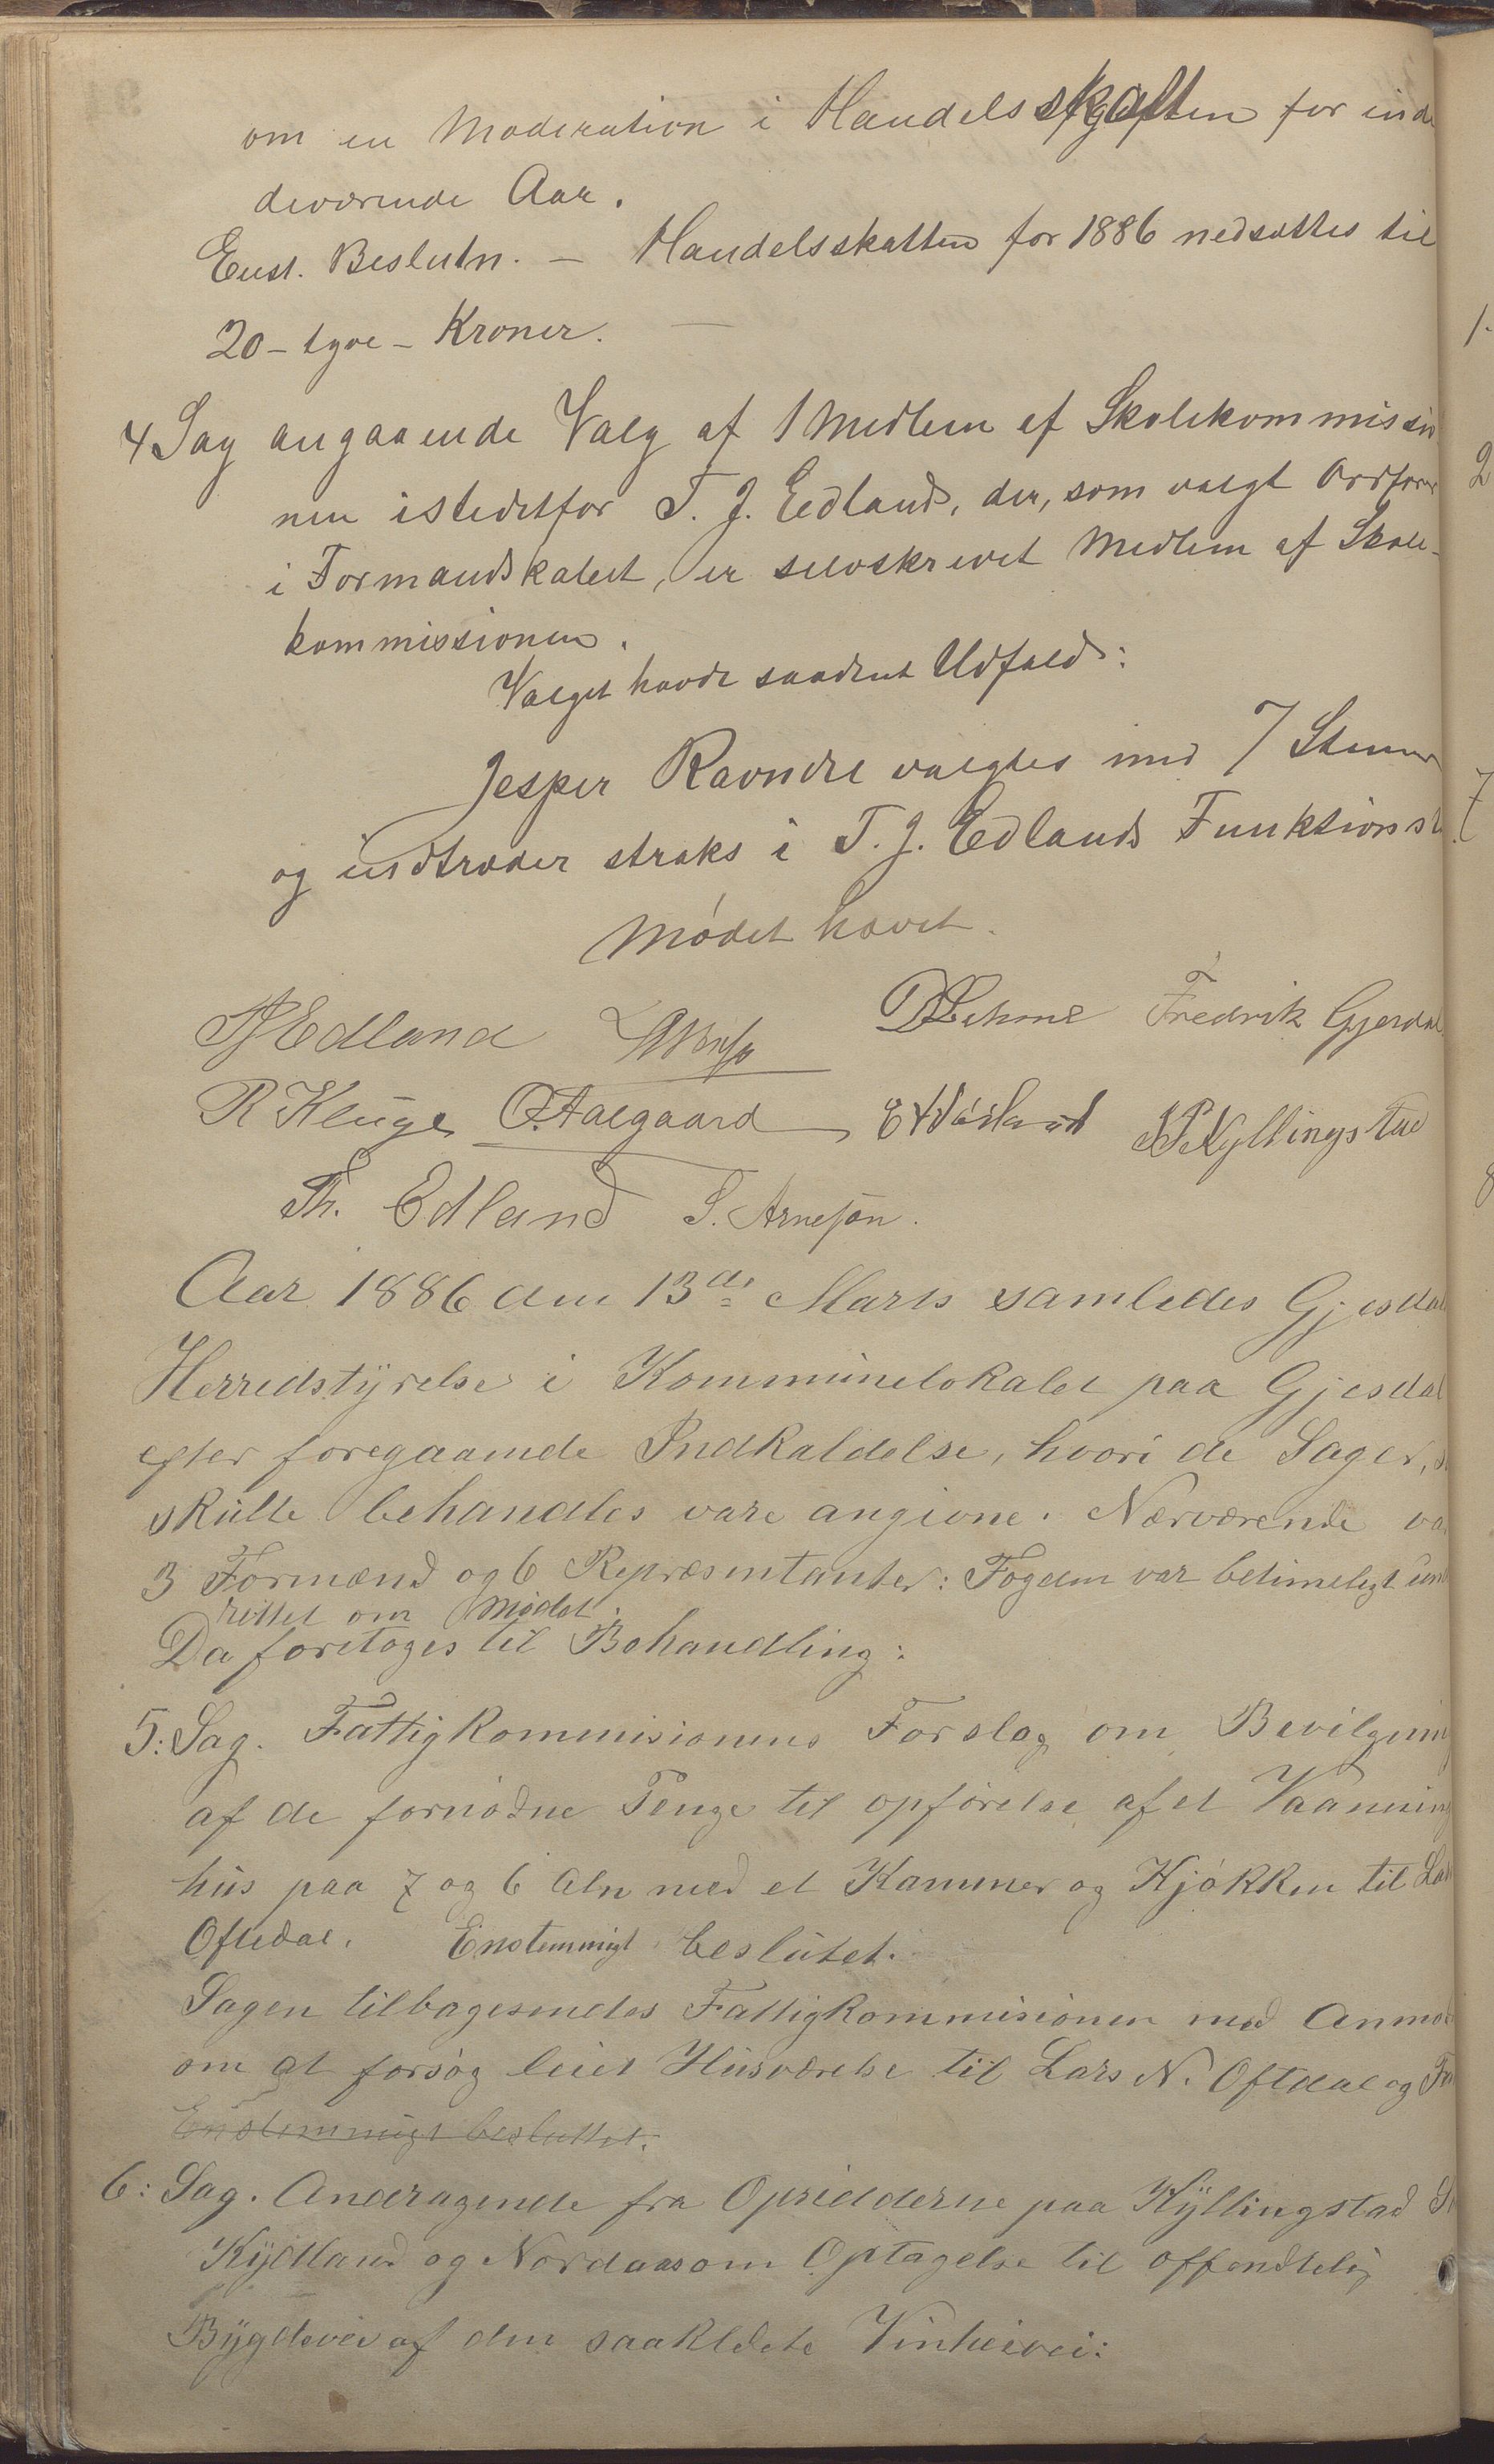 om en Moderation i Handelsskatten for inde
deværende Aar.
Enst. Beslutn. — Handelsskatten for 1886 nedsættes til
20 - tyve - Kroner. —
4 Sag angaaende Valg af 1 Medlem af Skolekommissio
nen istedetfor T. J. Edland, der, som valgt Ordfører
i Formandskabet, er selvskrevet Medlem af Skole-
kommissionen.
Valget havde saadant Udfald:
Jesper Ravndal valgtes med 7 Stemmer
og indtræder straks i T. J. Edlands Funktionst
Mødet hævet.
TJEdland Fredrik Gjerdal
R Kluge O. Aalgaard E Vasland Kyllingstad
Th. Edland T. Arnesen.
Aar 1886 den 13de Marts samledes Gjesdal
Herredstyrelse i Kommunelokalet paa Gjesdal
efter foregaaende Indkaldelse, hvori de Sager, s
skulle behandles vare angivne. Nærværende va
3 Formænd og 6 Repræsentanter: Fogden var betimeligt und
rettet om Mødet.
Da foretoges til Behandling:
5: Sag. Fattigkommisionens Forslag om Bevilgning
af de fornødne Penge til opførelse af et Vaanning
hus paa 7 og 6 Aln med et Kammer og Kjøkken til Lars
Oftedal. Enstemmigt beslutet.
Sagen tilbagesendes Fattigkommisionen med Anmod
om at forsøg leiet Husværelse til Lars N. Oftedal og Fa
Enstemmigt besluttet.
6: Sag. Andragende fra Opsidderne paa Kyllingstad
Kydland og Nordaas om Optagelse til offendtelig
Bygdevei af den saakldete Vinteivei: